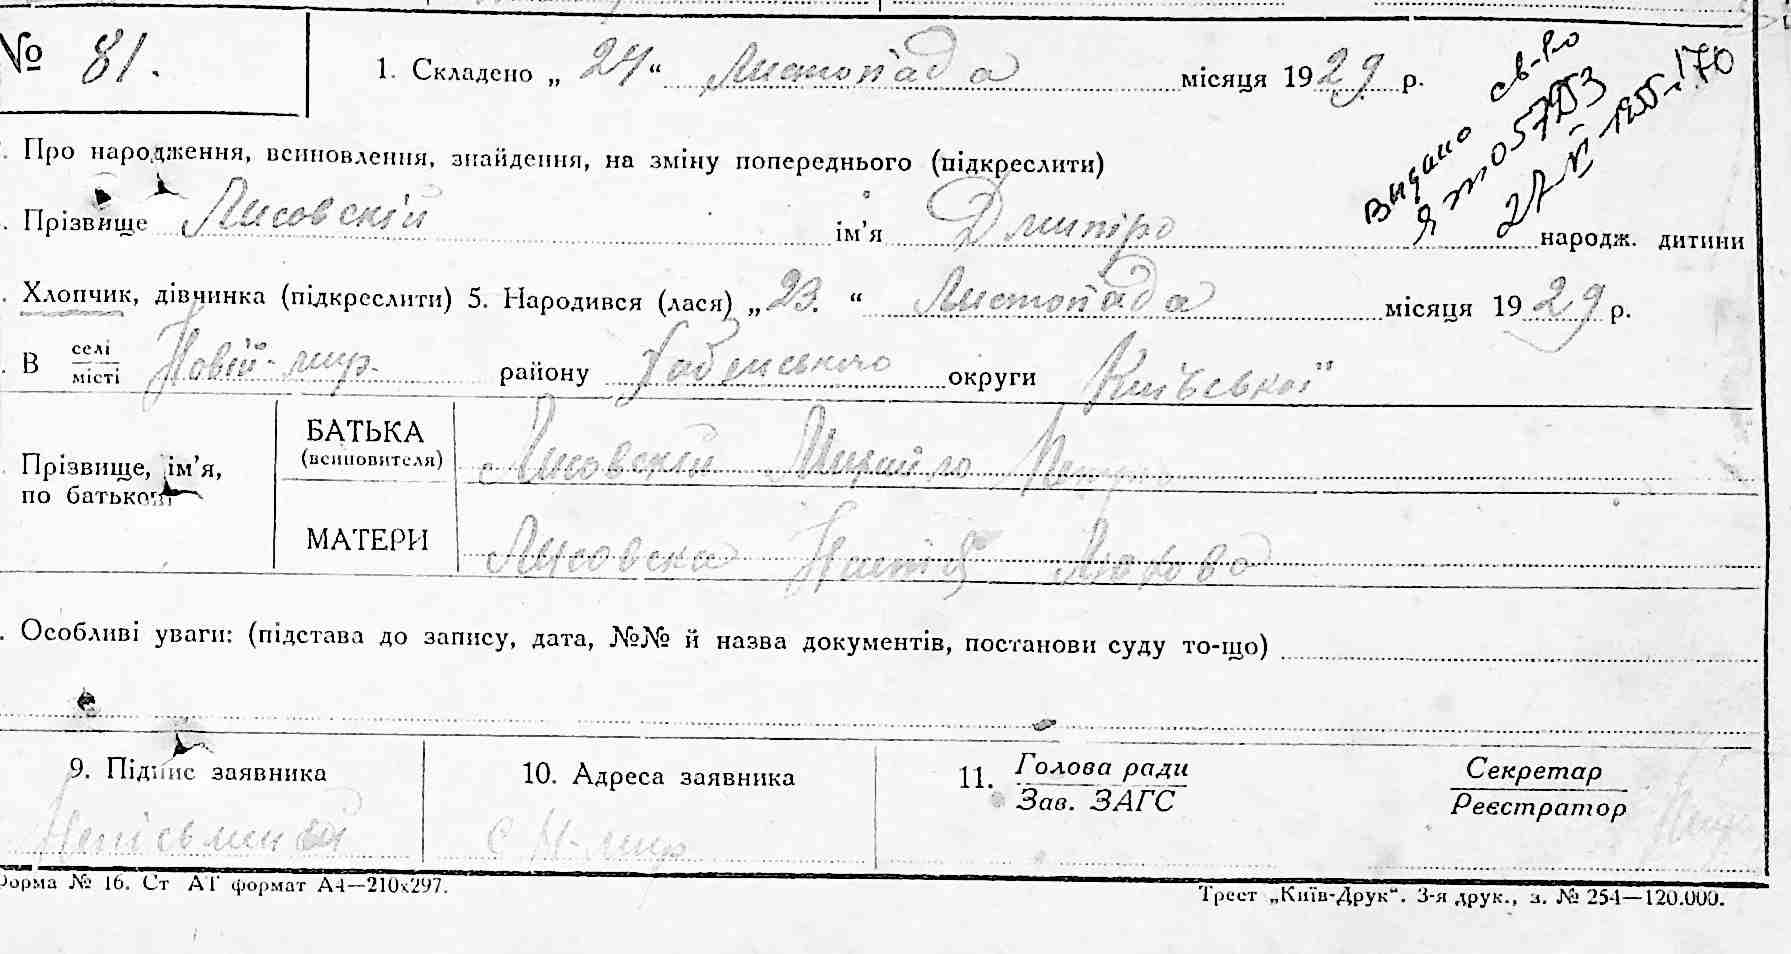 № 81. 1. Складено „ 24 “ Листопада місяця 1929 р.
Видано св-во
Я то 57
Про народження, всиновлення, знайдення, на зміну попереднього (підкреслити)
Прізвище Лисовскій ім’я Дмитро народж. дитини
Хлопчик, дівчинка (підкреслити) 5. Народився (лася) „ 23. “ Листопада місяця 1929 р.
В селі місті Новій-мир. району Хабенського округи Київської
Прізвище, ім’я, по батькові
БАТЬКА (всиновителя) Лисовскій Михайло
МАТЕРИ Лисовска
Особливі уваги: (підстава до запису, дата, №№ й назва документів, постанови суду то-що)
9. Підпис заявника 10. Адреса заявника 11. Голова ради Зав. ЗАГС Секретар Реєстратор
Неписьменный с Н-мир
Форма № 16. Ст АТ формат А4—210х297. Трест „Київ-Друк“. 3-я друк., з. № 254—120.000.